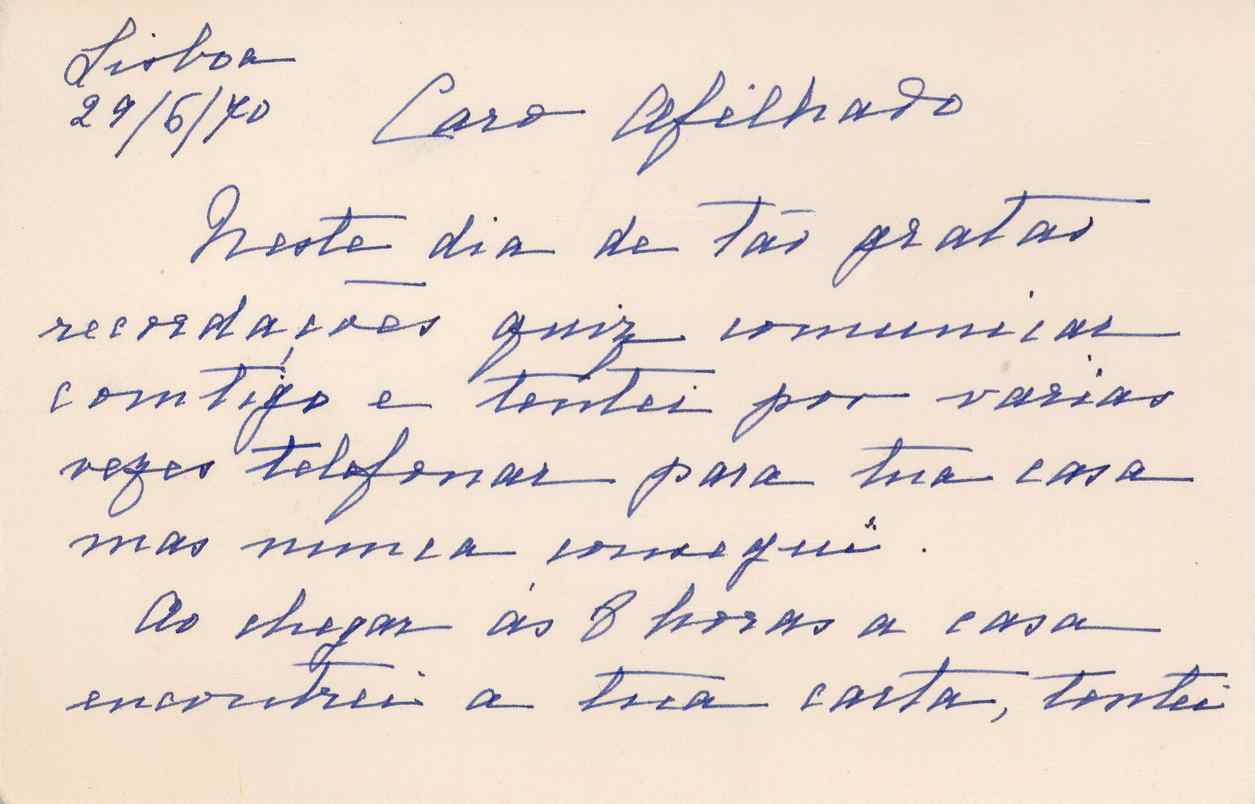 Lisboa
29/6/70
Caro Afilhado
Neste dia de tão gratas
recordações quiz comunicar
comtigo e tentei por varias
vezes telefonar para tua casa
mas nunca consegui.
Ao chegar ás 8 horas a casa
encontrei a tua carta, tentei